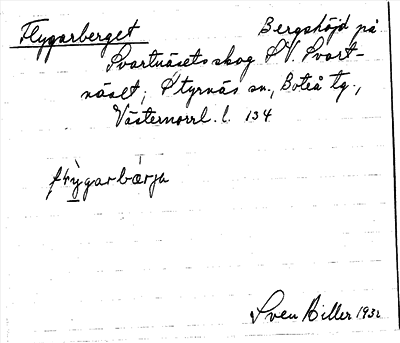 Flygarberget Bergshöjd på
Svartnäsets skog SV. Svart-
näset, Styrnäs sn., Boteå tg.,
Västernorrl. l. 134
Sven Hiller 1932